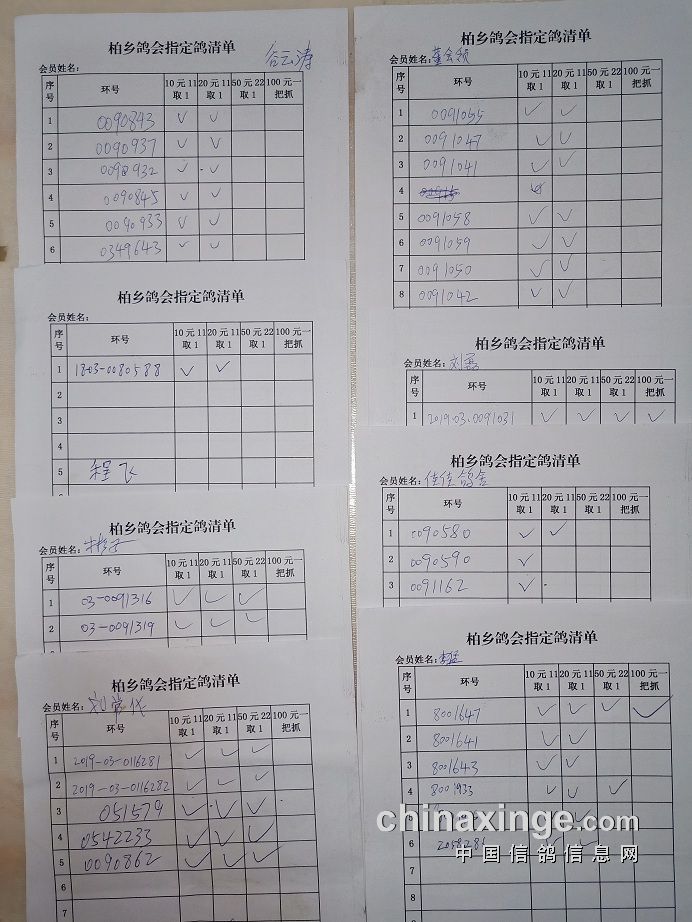 柏乡鸽会指定鸽清单
会员姓名: 谷云涛
序号 环号 10元11取1 20元11取1 50元22取1 100元一把抓
1 0090843 √ √
2 0090937 √ √
3 √ √
4 0090845 √ √
5 0090933 √ √
6 0349643 √ √
柏乡鸽会指定鸽清单
会员姓名:
序号 环号 10元11取1 20元11取1 50元22取1 100元一把抓
1 18-03-0080588 √ √
2
3
4
5 程飞
柏乡鸽会指定鸽清单
会员姓名:
序号 环号 10元11取1 20元11取1 50元22取1 100元一把抓
1 03-0091316 √ √ √
2 03-0091319 √ √ √
柏乡鸽会指定鸽清单
会员姓名: 刘常伐
序号 环号 10元11取1 20元11取1 50元22取1 100元一把抓
1 2019-03-0116281 √ √ √
2 2019-03-0116282 √ √ √
3 051579 √ √ √
4 0542233 √ √ √
5 0090862 √ √ √
6
7
柏乡鸽会指定鸽清单
会员姓名: 董会领
序号 环号 10元11取1 20元11取1 50元22取1 100元一把抓
1 0091055 √ √
2 0091047 √ √
3 0091041 √ √
4
5 0091058 √ √
6 0091059 √ √
7 0091050 √ √
8 0091042 √ √
柏乡鸽会指定鸽清单
会员姓名: 刘磊
序号 环号 10元11取1 20元11取1 50元22取1 100元一把抓
1 2019-03-0091031 √ √ √ √
柏乡鸽会指定鸽清单
会员姓名: 佳佳鸽舍
序号 环号 10元11取1 20元11取1 50元22取1 100元一把抓
1 0090580 √ √
2 0090590 √
3 0091162 √
柏乡鸽会指定鸽清单
会员姓名: 李猛
序号 环号 10元11取1 20元11取1 50元22取1 100元一把抓
1 8001647 √ √ √ √
2 8001641 √ √
3 8001643 √ √
4 8001933 √ √ √
chinaxinge.com
6 2058281 √
中国信鸽信息网
7